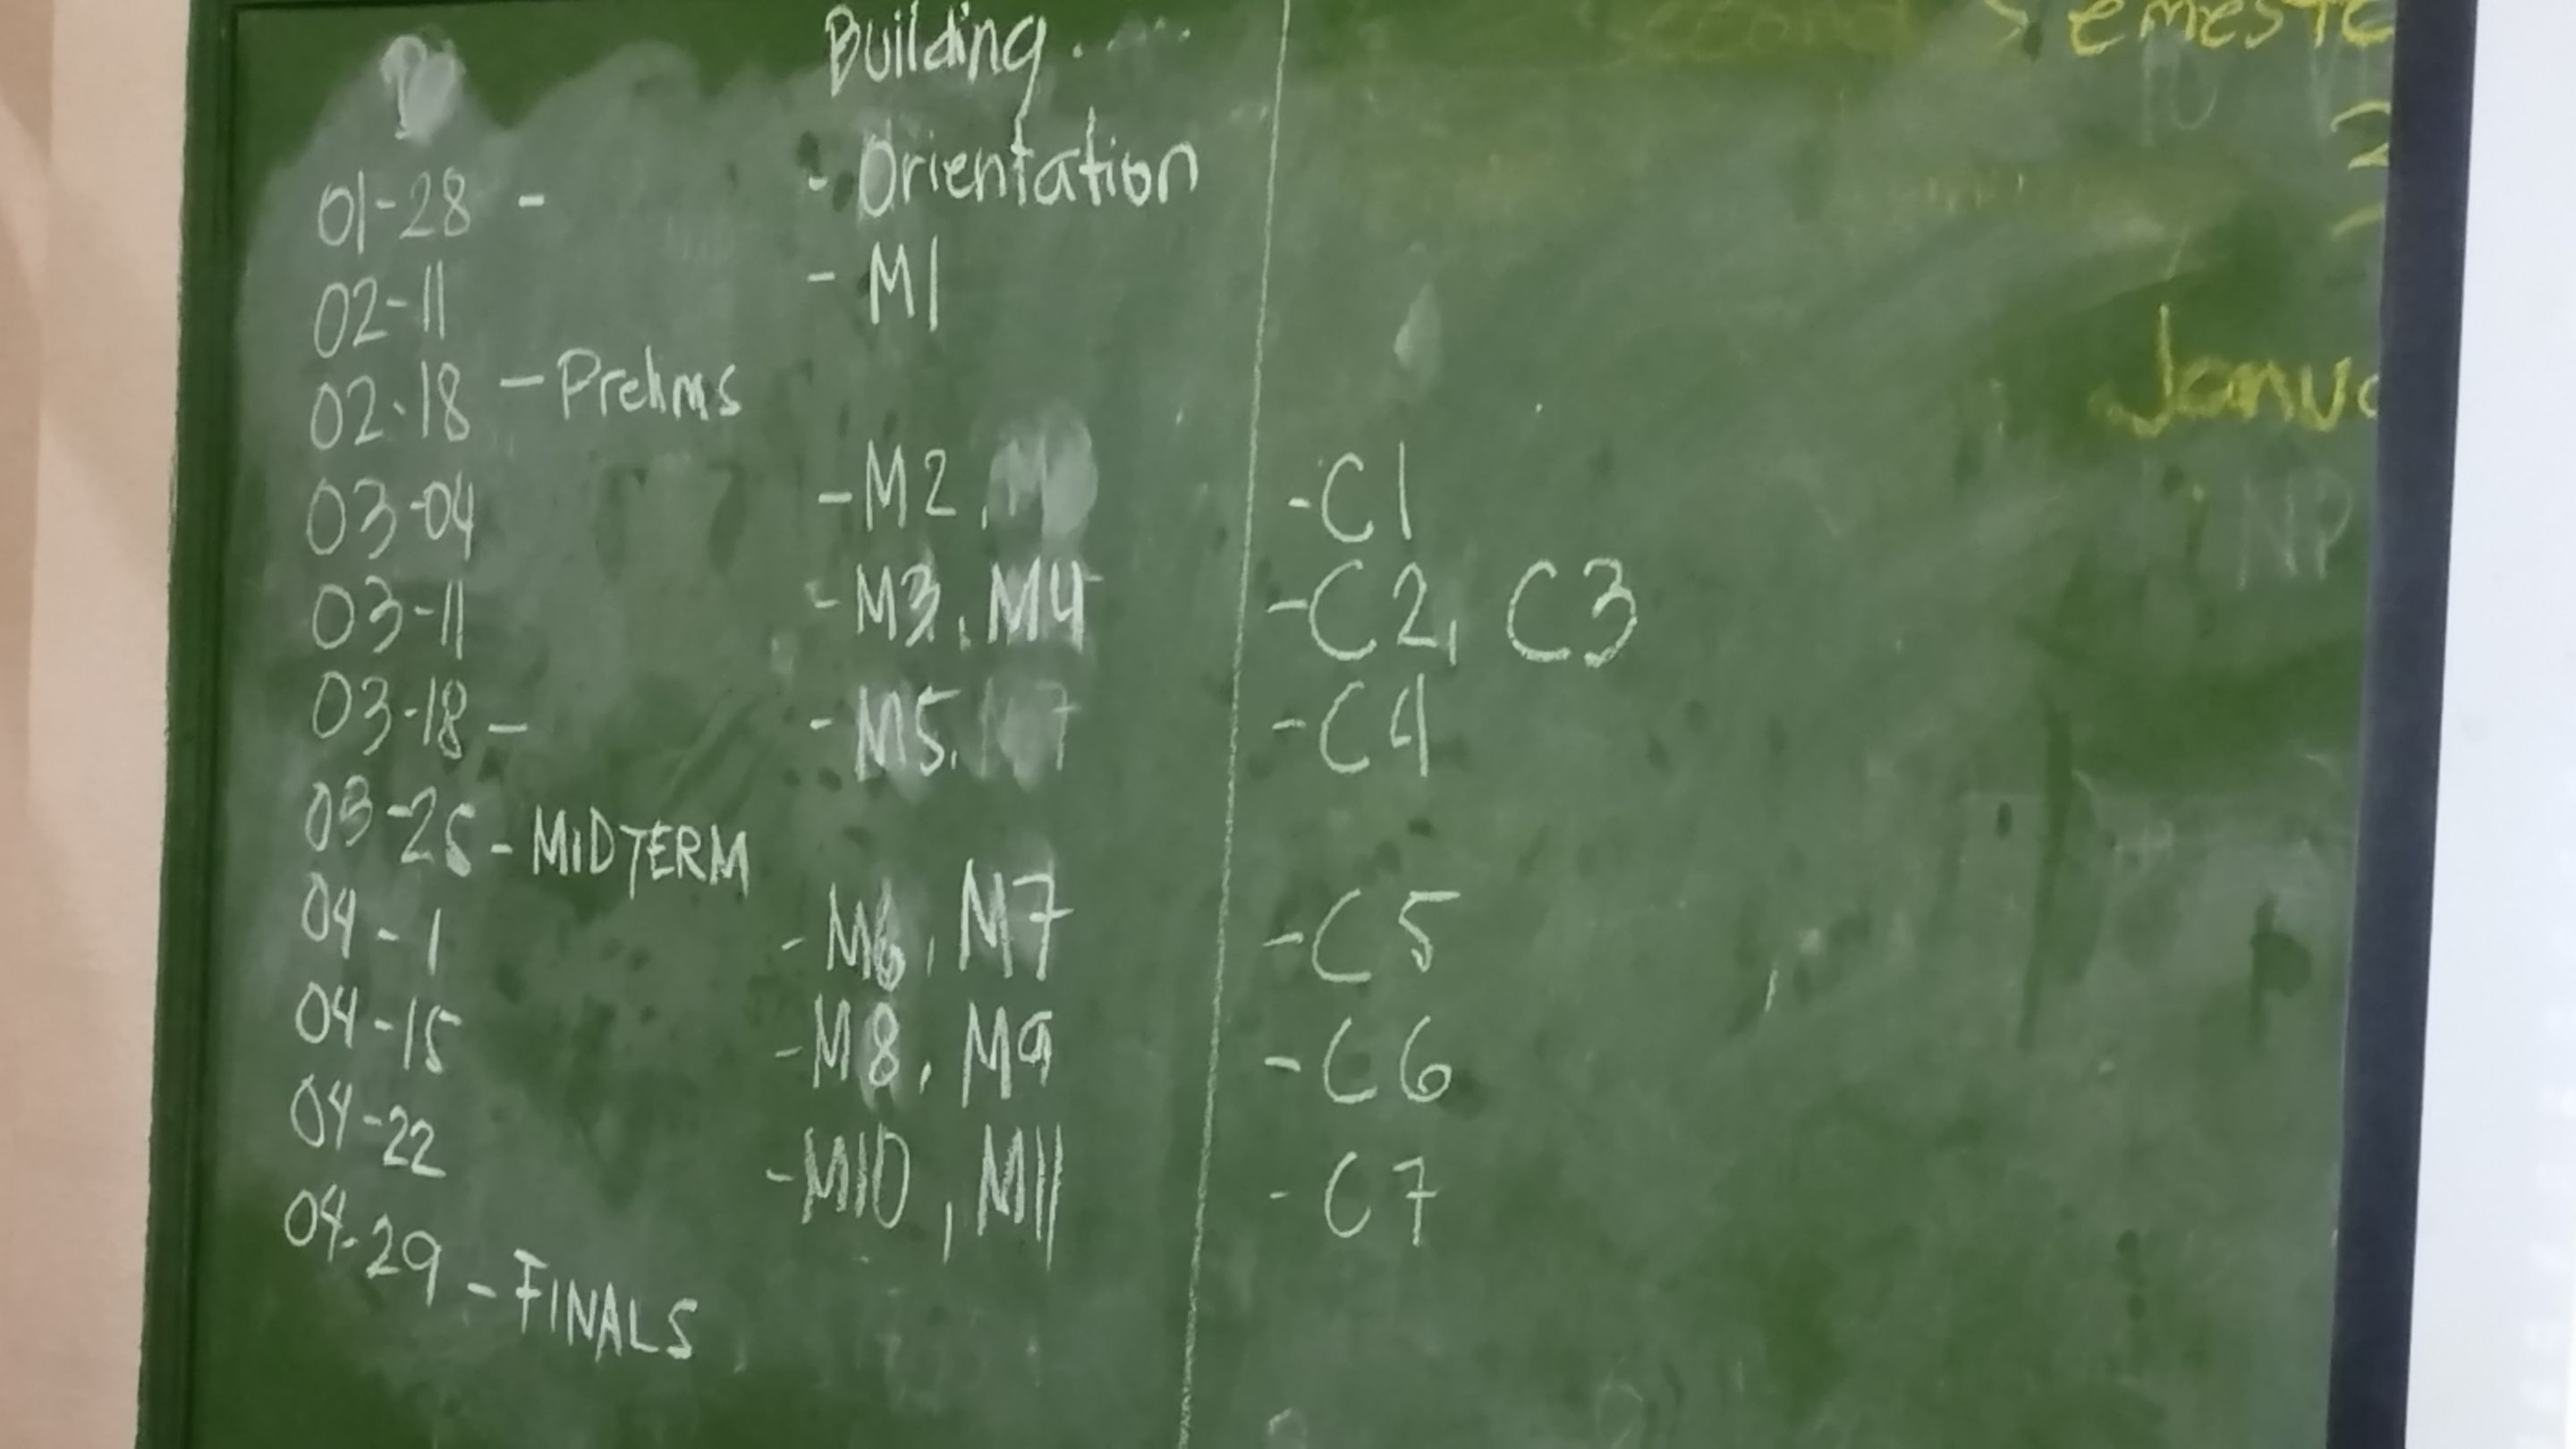 Building
01-28 - - Orientation
02-11 - M1
02-18 - Prelims
03-04 - M2, - C1
03-11 - M3, M4 - C2, C3
03-18 - - M5, - C4
03-25 - MIDTERM
04-1 - M6, M7 - C5
04-15 - M8, M9 - C6
04-22 - M10, M11 - C7
04-29 - FINALS
Semeste
2
Janua
NP